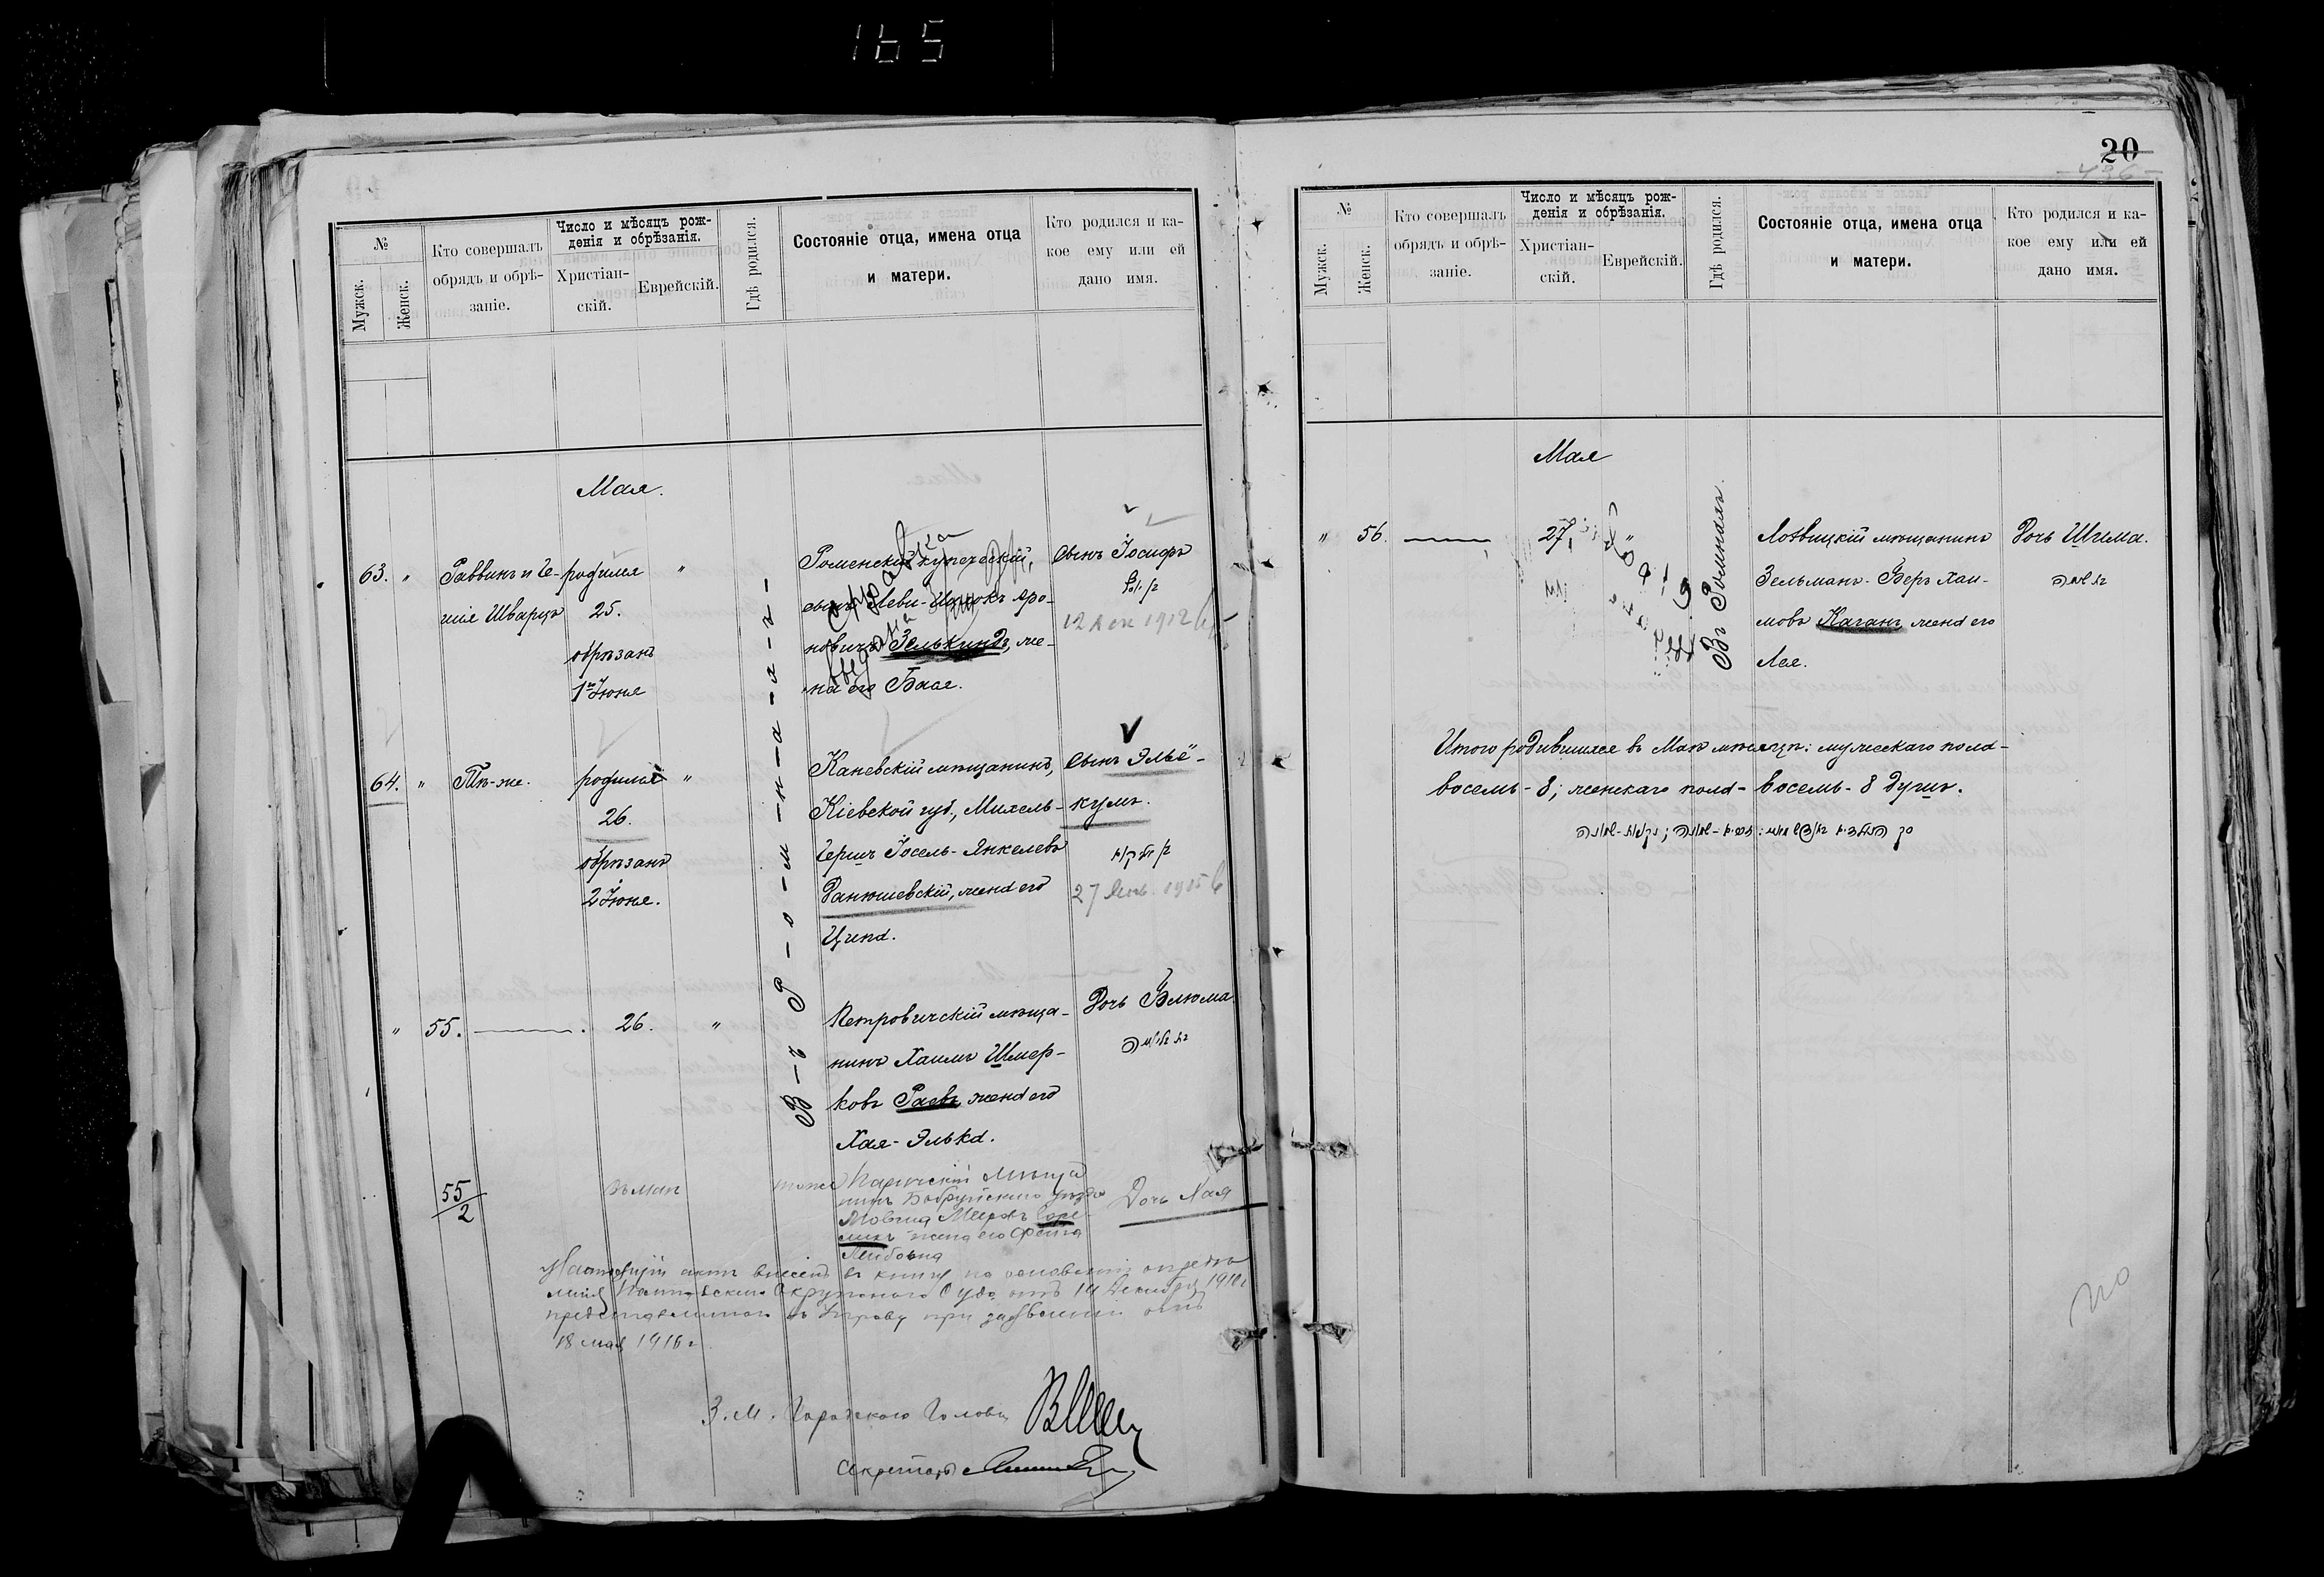 165
№
Мужск.
Женск.
Кто совершалъ
обрядъ и обрѣ-
заніе.
Число и мѣсяцъ рож-
денія и обрѣзанія.
Христіан-
скій.
Еврейскій.
Гдѣ родился.
Состояніе отца, имена отца
и матери.
Кто родился и ка-
кое ему или ей
дано имя.
Мая.
63. "
Раввинъ и Ге-
шія Шварцъ
родился
25.
обрѣзанъ
1го Іюня
"
Роменскій купеческій,
сынъ Леви-Ицхокъ Аро-
новичъ Зелькиндъ, же-
на его Баля.
справка
выдана
Сынъ Іосифъ
בן יוסף
12 Дек 1912
64. "
Тѣ-же.
родился
26.
обрѣзанъ
2 Іюня.
"
Каневскій мѣщанинъ,
Кіевской губ., Михель-
Гершъ Іосель-Янкелевъ
Ранюшевскій, жена его
Ципа.
Сынъ Элье-
кумъ.
27 Янв. 1915
В-ъ Р-о-м-н-а-х-ъ
" 55. 26. "
Петровичскій мѣща-
нинъ Хаимъ Шмер-
ковъ Раевъ, жена его
Хая-Элька.
Дочь Блюма
בת בלומה
55/2
въ маѣ
тоже
Паричскій мѣща
нинъ Бобруйскаго уѣзда
Мовша Мееровъ Горе-
ликъ жена его Фейга
Лейбовна
Дочь Хая
Настоящій актъ внесенъ въ книгу на основаніи опредѣ
ленія Полтавскаго Окружнаго Суда отъ 14 Декабря 1910 г
представленнаго въ Управу при заявленіи отъ
18 мая 1916 г.
З. М. Городского Головы
Секретарь
20
436
№
Мужск.
Женск.
Кто совершалъ
обрядъ и обрѣ-
заніе.
Число и мѣсяцъ рож-
денія и обрѣзанія.
Христіан-
скій.
Еврейскій.
Гдѣ родился.
Состояніе отца, имена отца
и матери.
Кто родился и ка-
кое ему или ей
дано имя.
Мая
" 56. 27. "
Въ Ромнахъ.
Лохвицкій мѣщанинъ
Зельманъ-Беръ Хаи-
мовъ Каганъ, жена его
Лея.
Дочь Шлема.
Итого родившихся въ Маѣ мѣсяцѣ: мужескаго пола-
восемь-8; женскаго пола-восемь-8 душъ.